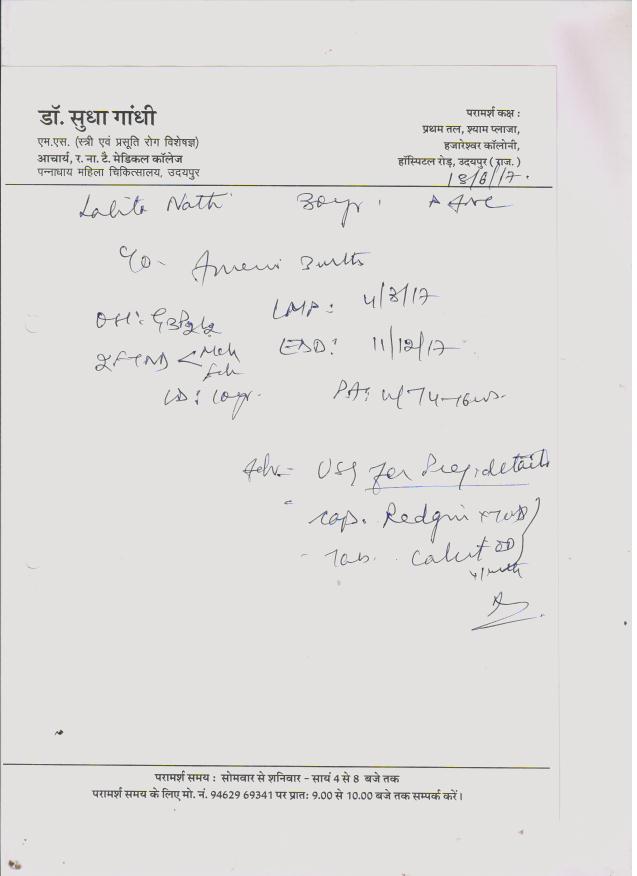 डॉ. सुधा गांधी
एम.एस. (स्त्री एवं प्रसूति रोग विशेषज्ञ)
आचार्य, र. ना. टै. मेडिकल कॉलेज
पन्नाधाय महिला चिकित्सालय, उदयपुर
परामर्श कक्ष :
प्रथम तल, श्याम प्लाजा,
हजारेश्वर कॉलोनी,
हॉस्पिटल रोड़, उदयपुर ( राज. )
18/6/17.
Lalita Nath 30yr. ANC
C/O -
OH: G3P2L2 LMP: 4/3/17
2FTND < Mch Fch EDD: 11/12/17
LD: 10yr. PA:
Adv - USG for Preg. details
- Cap. Redgin
- Tab. OD
परामर्श समय : सोमवार से शनिवार - सायं 4 से 8 बजे तक
परामर्श समय के लिए मो. नं. 94629 69341 पर प्रातः 9.00 से 10.00 बजे तक सम्पर्क करें।